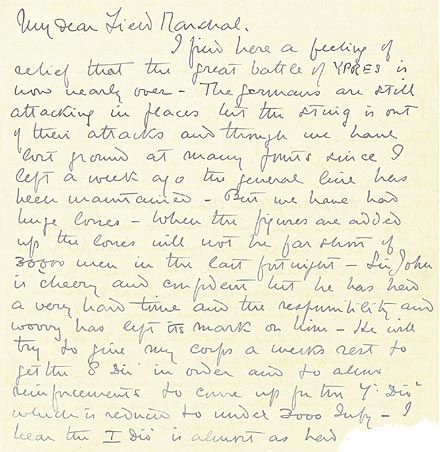 My dear Field Marshal.
I find here a feeling of
relief that the great battle of YPRES is
now nearly over - The Germans are still
attacking in places but the sting is out
of their attacks and though we have
lost ground at many points since I
left a week ago the general line has
been maintained - But we have had
huge losses - When the figures are added
up the losses will not be far short of
30000 men in the last fortnight - Sir John
is cheery and confident but he has had
a very hard time and the responsibility and
worry has left its mark on him - He will
try to give my corps a weeks rest to
get the 8 Div in order and to allow
reinforcements to come up for the 7 Div
which is reduced to under 3000 Infy - I
hear the I Div is almost as bad